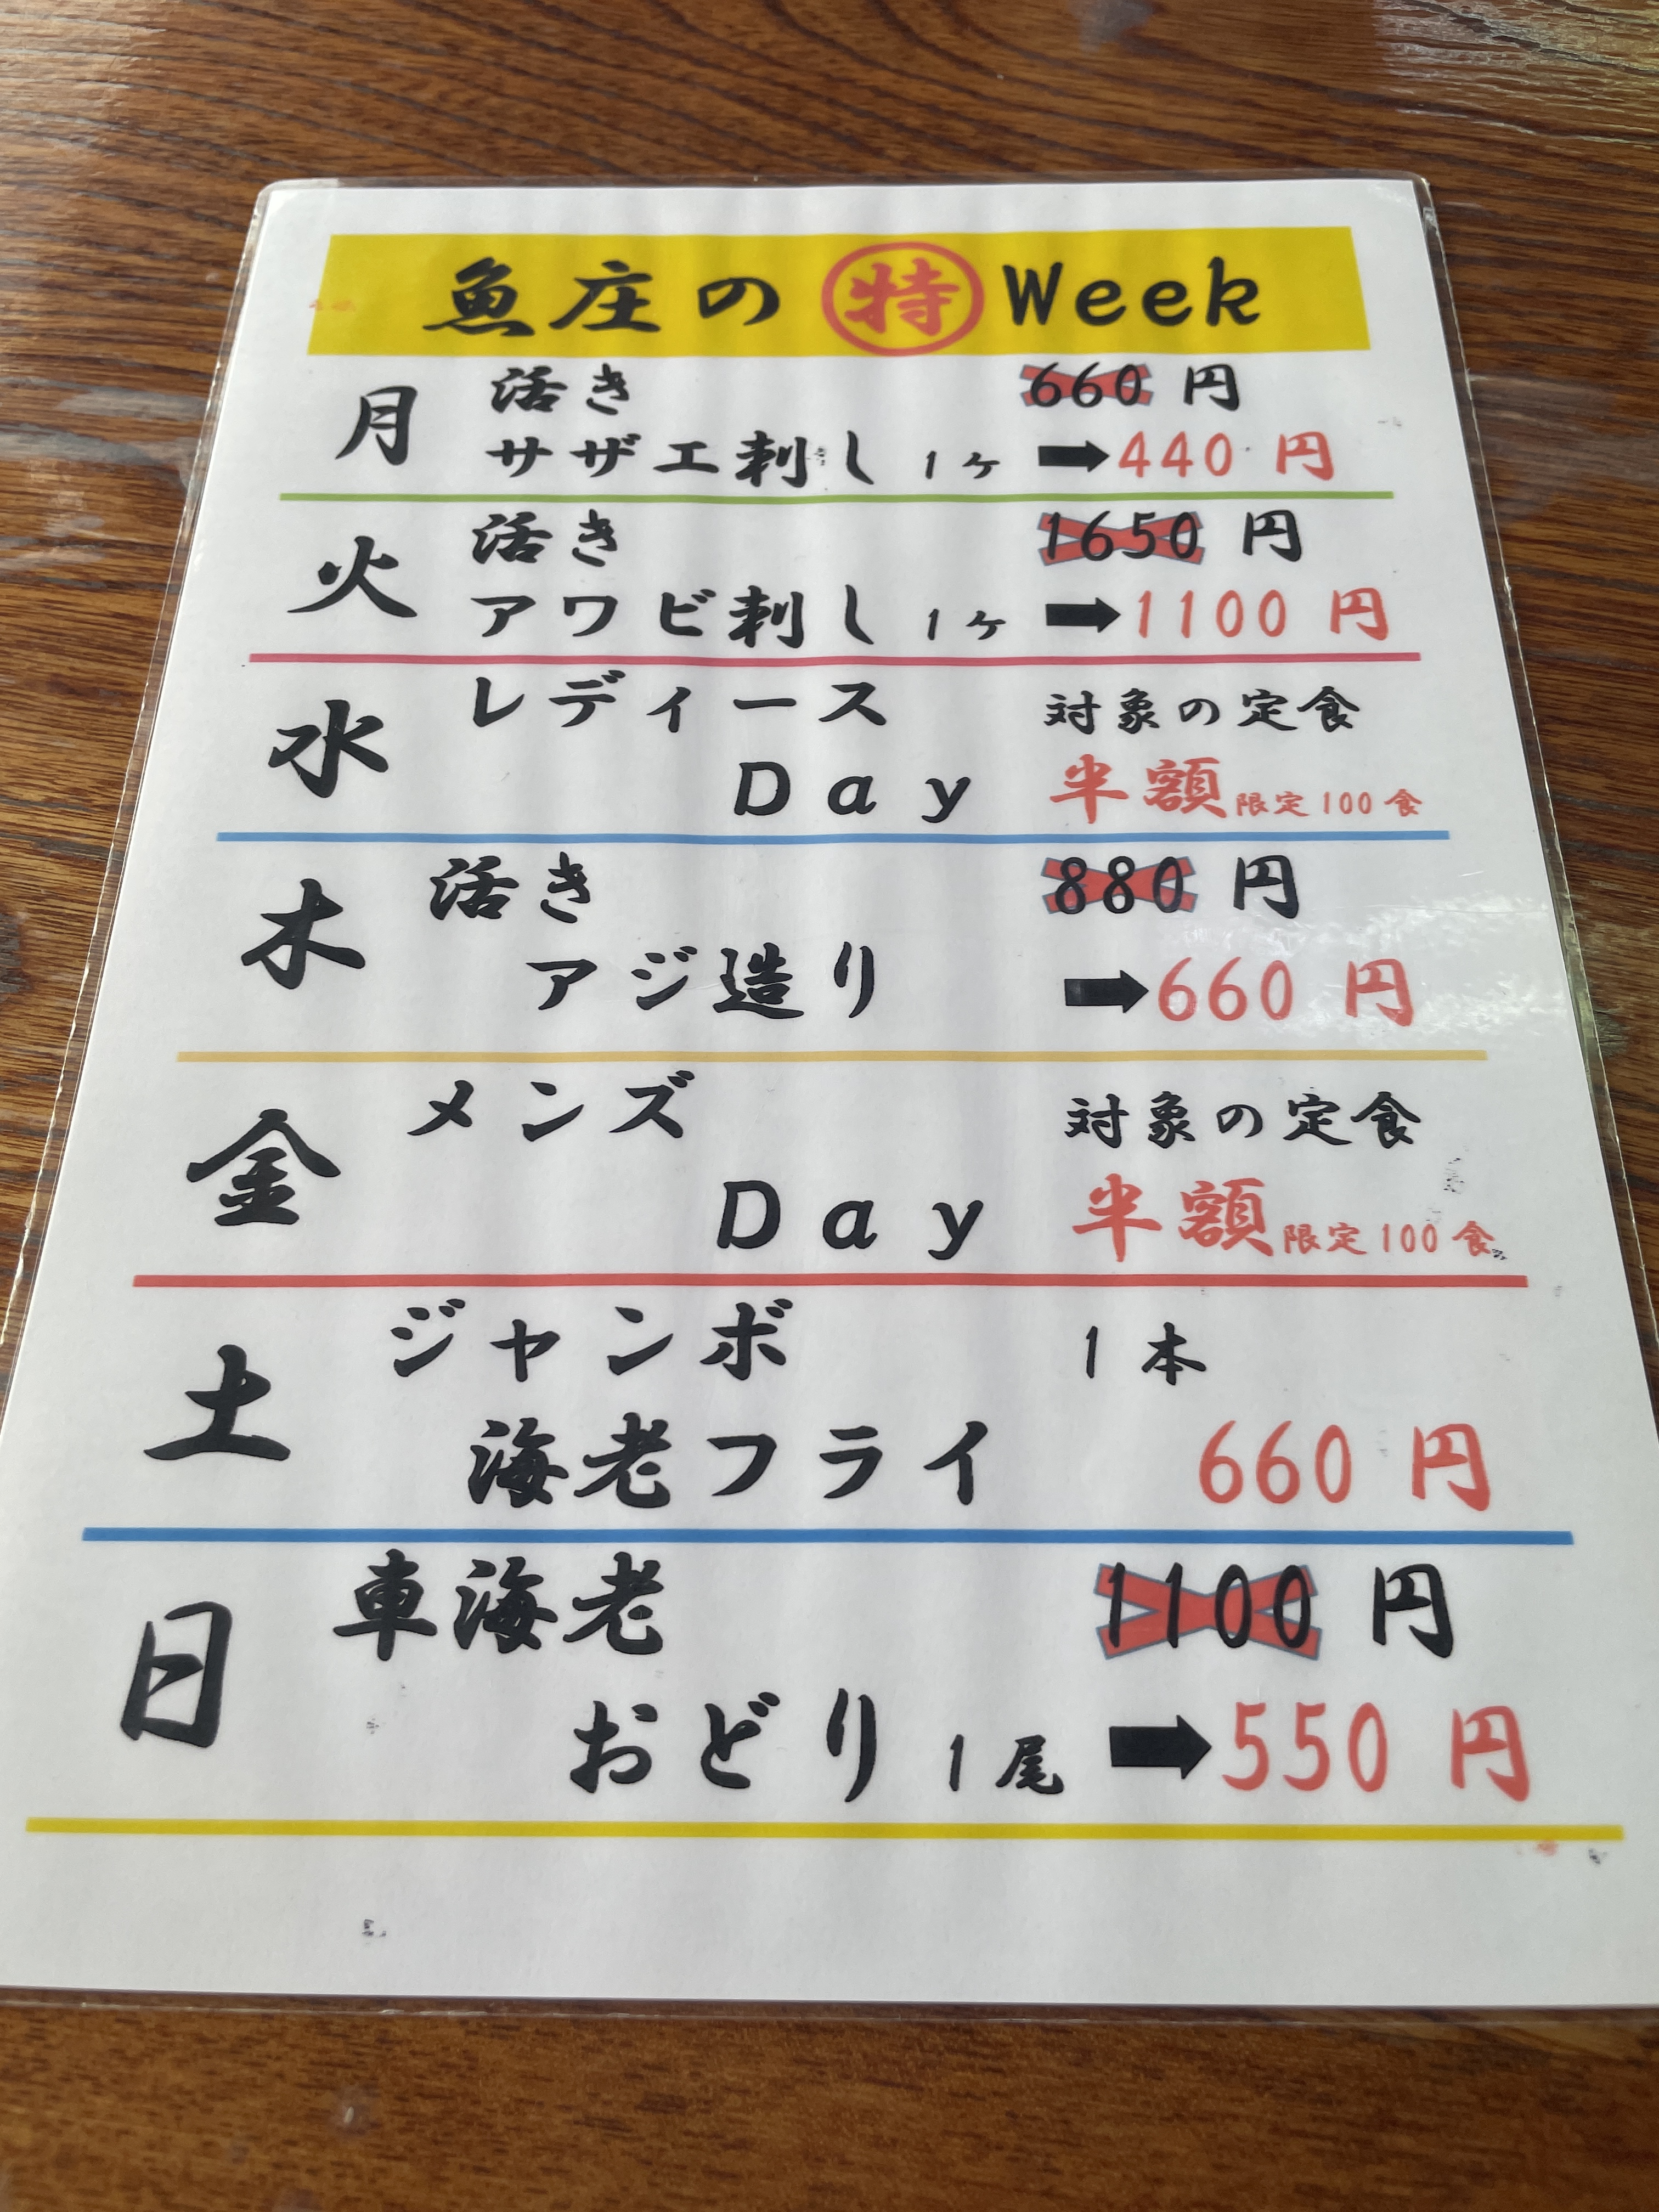 魚庄の㊕Week
月 活き 660円
サザエ刺し 1ヶ ➡440円
火 活き 1650円
アワビ刺し 1ヶ ➡1100円
水 レディース 対象の定食
Day 半額 限定100食
木 活き 880円
アジ造り ➡660円
金 メンズ 対象の定食
Day 半額 限定100食
土 ジャンボ 1本
海老フライ 660円
日 車海老 1100円
おどり 1尾 ➡550円